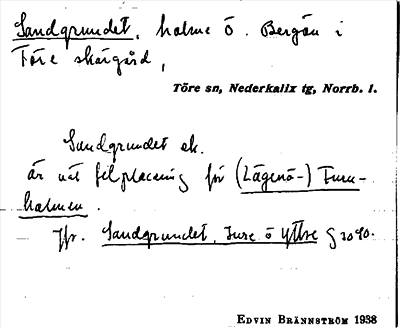 Sandgrundet, holme ö. Bergön i
Töre skärgård,
Töre sn, Nederkalix tg, Norrb. l.
Sandgrundet ek.
är nät felplacering för (Lägenö-) Furu-
holmen.
Jfr. Sandgrundet, Inre o Yttre
EDVIN BRÄNNSTRÖM 1938